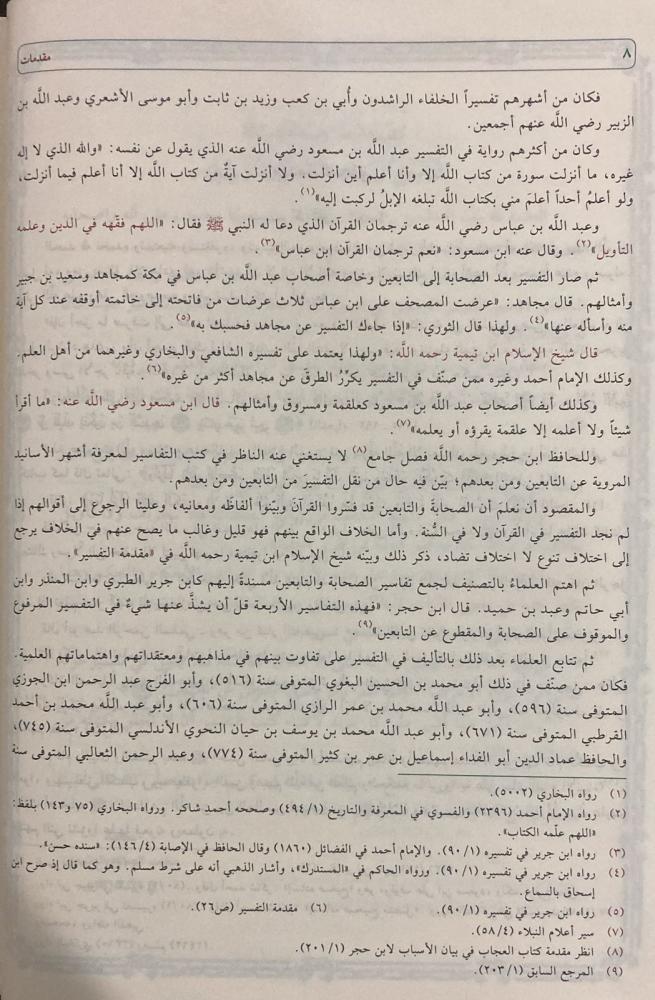 ٨
مقدمات
فكان من أشهرهم تفسيراً الخلفاء الراشدون وأُبي بن كعب وزيد بن ثابت وأبو موسى الأشعري وعبد اللَّه بن
الزبير رضي اللَّه عنهم أجمعين.
وكان من أكثرهم رواية في التفسير عبد اللَّه بن مسعود رضي اللَّه عنه الذي يقول عن نفسه: «والله الذي لا إله
غيره، ما أنزلت سورة من كتاب اللَّه إلا وأنا أعلم أين أنزلت. ولا أنزلت آيةٌ من كتاب اللَّه إلا أنا أعلم فيما أنزلت،
ولو أعلمُ أحداً أعلمَ مني بكتاب اللَّه تبلغه الإبلُ لركبت إليه»(١).
وعبد اللَّه بن عباس رضي اللَّه عنه ترجمان القرآن الذي دعا له النبي ﷺ فقال: «اللهم فقّهه في الدين وعلمه
التأويل»(٢). وقال عنه ابن مسعود: «نعم ترجمان القرآن ابن عباس»(٣).
ثم صار التفسير بعد الصحابة إلى التابعين وخاصة أصحاب عبد اللَّه بن عباس في مكة كمجاهد وسعيد بن جبير
وأمثالهم. قال مجاهد: «عرضت المصحف على ابن عباس ثلاث عرضات من فاتحته إلى خاتمته أوقفه عند كل آية
منه وأسأله عنها»(٤). ولهذا قال الثوري: «إذا جاءك التفسير عن مجاهد فحسبك به»(٥).
قال شيخ الإسلام ابن تيمية رحمه اللَّه: «ولهذا يعتمد على تفسيره الشافعي والبخاري وغيرهما من أهل العلم.
وكذلك الإمام أحمد وغيره ممن صنّف في التفسير يكرِّرُ الطرقَ عن مجاهد أكثر من غيره»(٦).
وكذلك أيضاً أصحاب عبد اللَّه بن مسعود كعلقمة ومسروق وأمثالهم. قال ابن مسعود رضي اللَّه عنه: «ما أقرأ
شيئاً ولا أعلمه إلا علقمة يقرؤه أو يعلمه»(٧).
وللحافظ ابن حجر رحمه اللَّه فصل جامع(٨) لا يستغني عنه الناظر في كتب التفاسير لمعرفة أشهر الأسانيد
المروية عن التابعين ومن بعدهم؛ بيّن فيه حال من نقل التفسيرَ من التابعين ومن بعدهم.
والمقصود أن نعلمَ أن الصحابةَ والتابعين قد فسّروا القرآنَ وبيّنوا ألفاظَه ومعانيه، وعلينا الرجوع إلى أقوالهم إذا
لم نجد التفسير في القرآن ولا في السُّنة. وأما الخلاف الواقع بينهم فهو قليل وغالب ما يصح عنهم في الخلاف يرجع
إلى اختلاف تنوع لا اختلاف تضاد، ذكر ذلك وبيّنه شيخ الإسلام ابن تيمية رحمه اللَّه في «مقدمة التفسير».
ثم اهتم العلماءُ بالتصنيف لجمع تفاسير الصحابة والتابعين مسندةً إليهم كابن جرير الطبري وابن المنذر وابن
أبي حاتم وعبد بن حميد. قال ابن حجر: «فهذه التفاسير الأربعة قلّ أن يشذَّ عنها شيءٌ في التفسير المرفوع
والموقوف على الصحابة والمقطوع عن التابعين»(٩).
ثم تتابع العلماء بعد ذلك بالتأليف في التفسير على تفاوت بينهم في مذاهبهم ومعتقداتهم واهتماماتهم العلمية.
فكان ممن صنّف في ذلك أبو محمد بن الحسين البغوي المتوفى سنة (٥١٦)، وأبو الفرج عبد الرحمن ابن الجوزي
المتوفى سنة (٥٩٦)، وأبو عبد اللَّه محمد بن عمر الرازي المتوفى سنة (٦٠٦)، وأبو عبد اللَّه محمد بن أحمد
القرطبي المتوفى سنة (٦٧١)، وأبو عبد اللَّه محمد بن يوسف بن حيان النحوي الأندلسي المتوفى سنة (٧٤٥)،
والحافظ عماد الدين أبو الفداء إسماعيل بن عمر بن كثير المتوفى سنة (٧٧٤)، وعبد الرحمن الثعالبي المتوفى سنة
(١) رواه البخاري (٥٠٠٢).
(٢) رواه الإمام أحمد (٢٣٩٦) والفسوي في المعرفة والتاريخ (٤٩٤/١) وصححه أحمد شاكر. ورواه البخاري (٧٥ و١٤٣) بلفظ:
«اللهم علّمه الكتاب».
(٣) رواه ابن جرير في تفسيره (٩٠/١). والإمام أحمد في الفضائل (١٨٦٠) وقال الحافظ في الإصابة (١٤٦/٤): «سنده حسن».
(٤) رواه ابن جرير في تفسيره (٩٠/١). ورواه الحاكم في «المستدرك»، وأشار الذهبي أنه على شرط مسلم. وهو كما قال إذ صرح ابن
إسحاق بالسماع.
(٥) رواه ابن جرير في تفسيره (٩٠/١). (٦) مقدمة التفسير (ص٢٦).
(٧) سير أعلام النبلاء (٥٨/٤).
(٨) انظر مقدمة كتاب العجاب في بيان الأسباب لابن حجر (٢٠١/١).
(٩) المرجع السابق (٢٠٣/١).